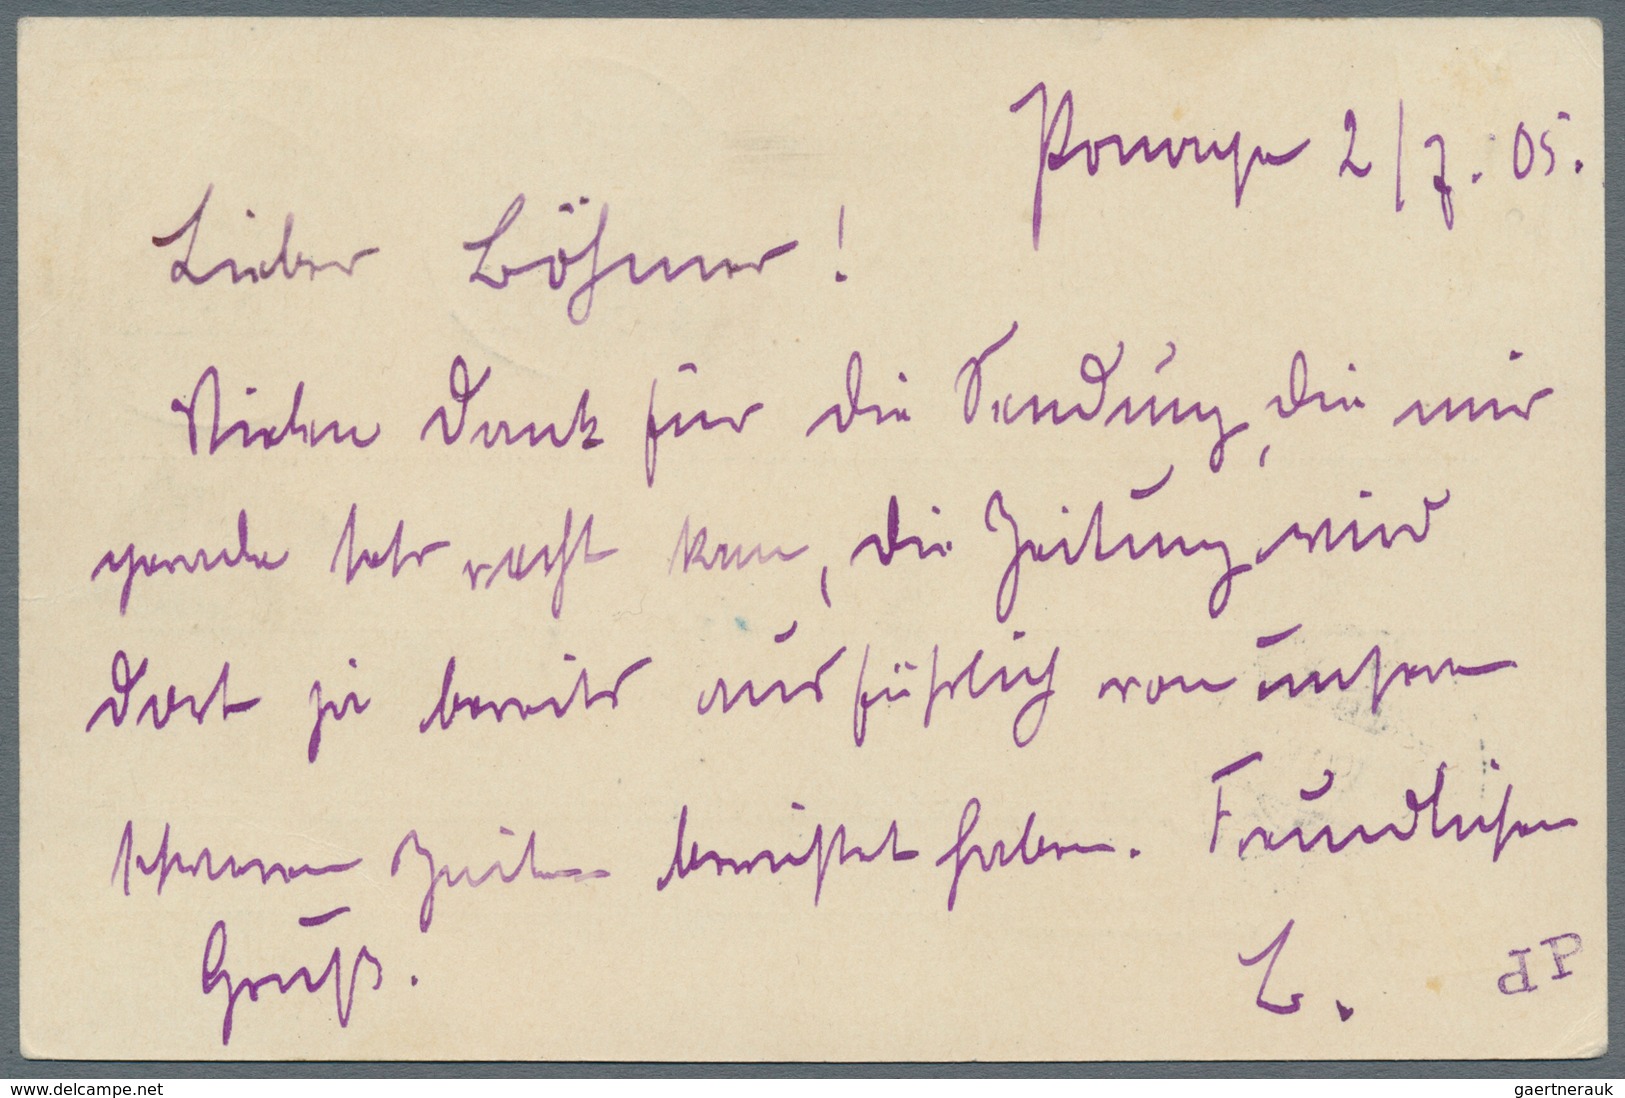 Ponape 2/7.05.
Lieber Böhmer!
Vielen Dank für die Sendung, die mir
gerade sehr recht kam, die Zeitung wird
dort ja bereits ausführlich von unseren
schweren Zeiten berichtet haben. Freundlichen
Gruß.
L.
dP
www.delcampe.net
gaertnerauk